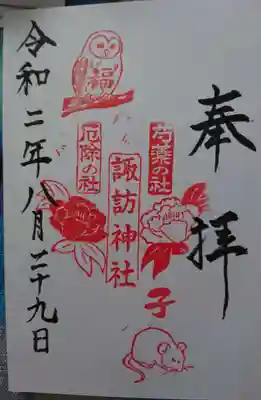 奉拝
芍薬の社
福
諏訪神社
子
厄除の社
令和二年八月二十九日